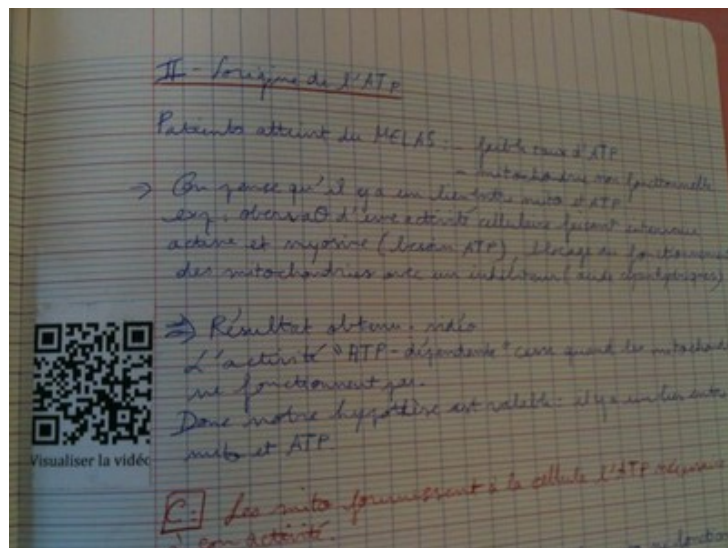 II - L'origine de l'ATP
Patients atteint du MELAS : - faible taux d'ATP
- mitochondrie non fonctionnelle
→ On pense qu'il y a un lien entre mito et ATP.
exp. observaΘ d'une activité cellulaire faisant intervenir
actine et myosine (besoin ATP), blocage du fonctionnement
des mitochondries avec un inhibiteur (
⇒ Résultat obtenu : vidéo
L'activité "ATP-dépendante" cesse quand les mitochond
ne fonctionnent pas.
Donc notre hypothèse est valable : il y a un lien entre
mito et ATP.
Visualiser la vidéo
C : Les mito fournissent à la cellule l'ATP nécessaire
à son activité.